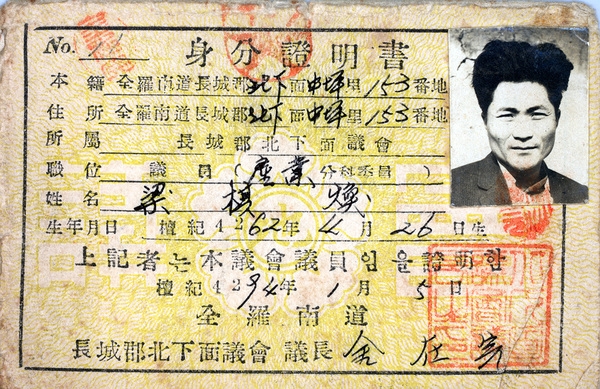 No. 1
身分證明書
本籍 全羅南道長城郡北下面中坪里153番地
住所 全羅南道長城郡北下面中坪里153番地
所屬 長城郡北下面議會
職位 議員(産業分科委員)
姓名 梁 煥
生年月日 檀紀4262年4月26日生
上記者는本議會議員임을證明함
檀紀4294年1月5日
全羅南道
長城郡北下面議會 議長 金